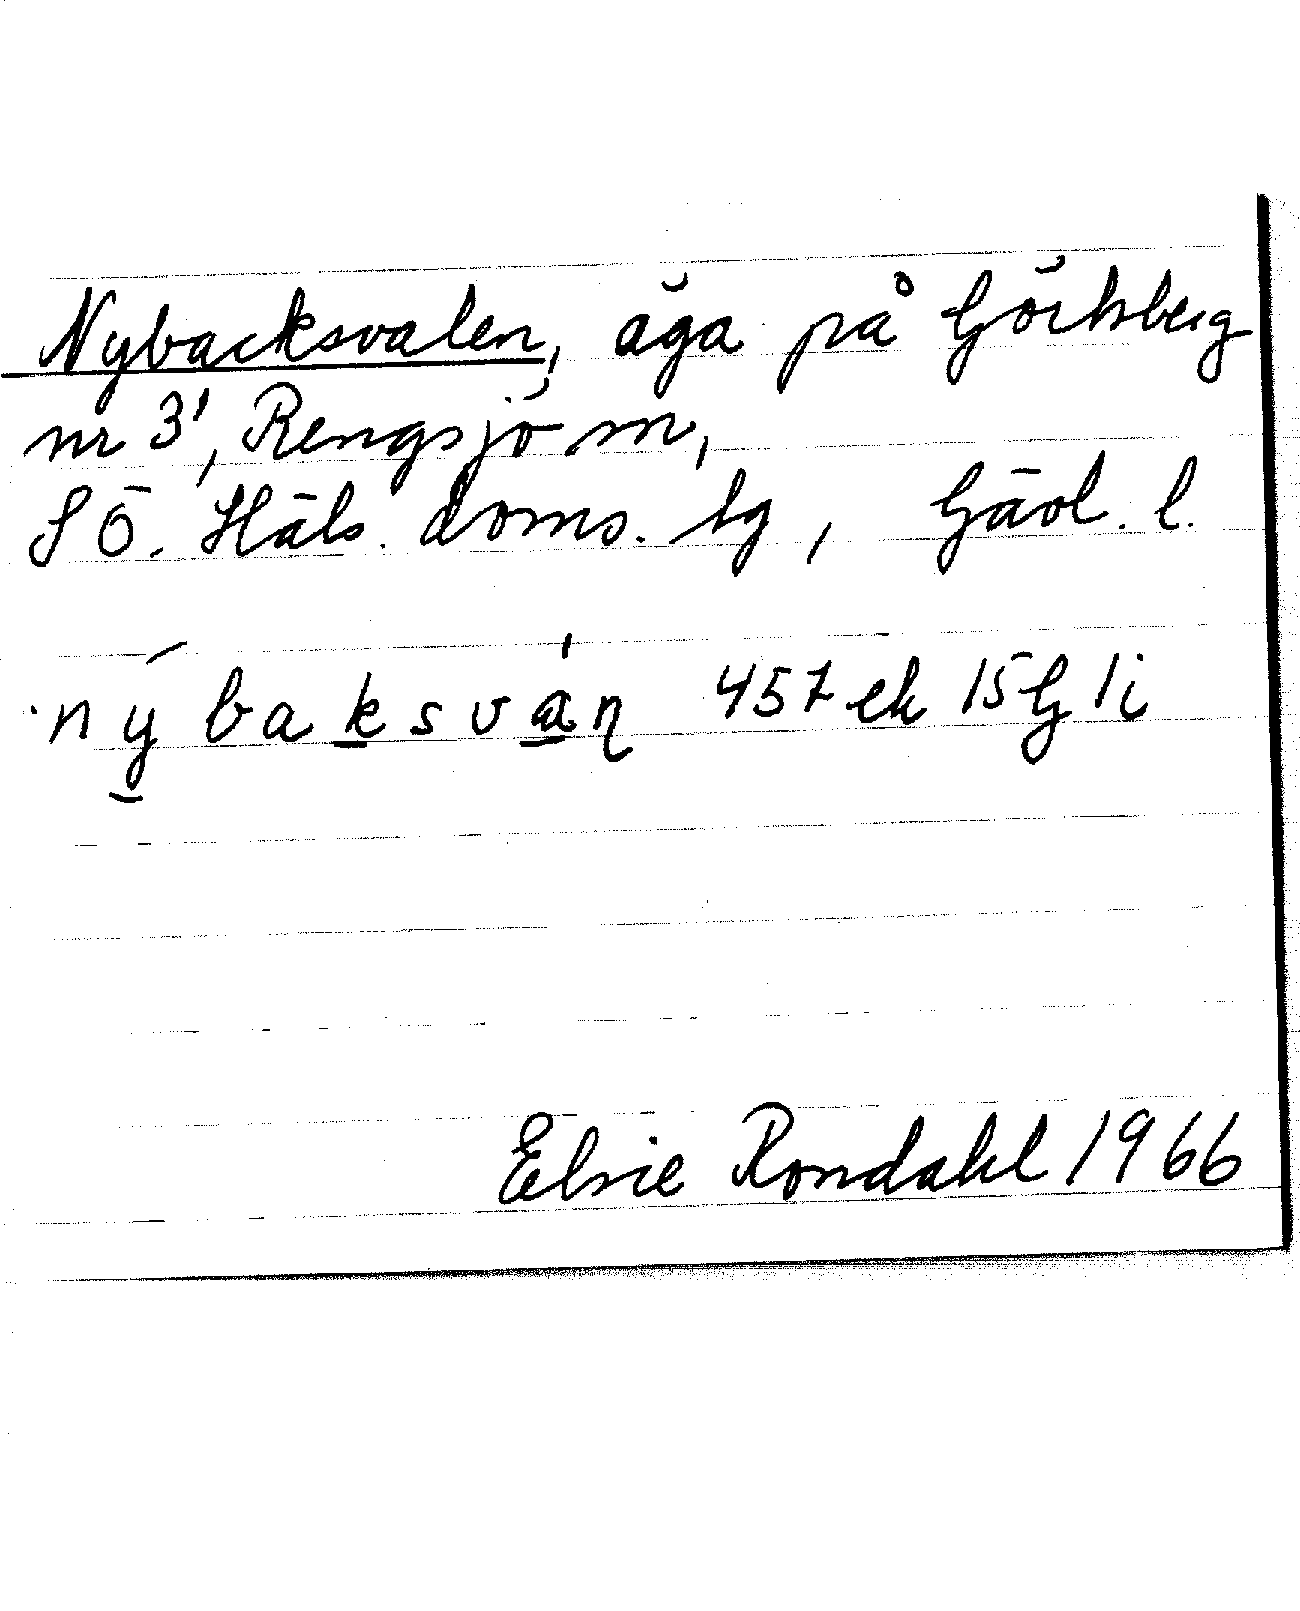 Nybacksvalen, äga på Görksberg
nr 3', Rengsjö sn,
SÖ. Häls. doms. tg, Gävl. l.
nýbaksváṇ 457 ek 15 G 1i
Elsie Rondahl 1966